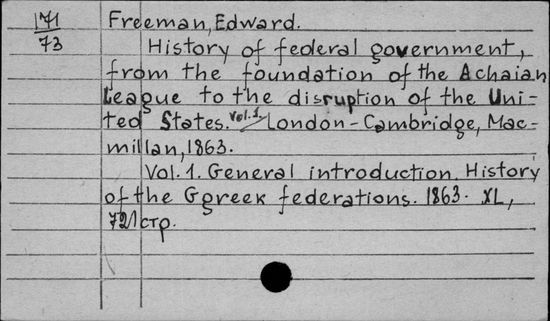 171 Freeman, Edward.
73
History of federal government,
from the foundation of the Achaian
League to the disruption of the Uni-
ted States. Vol.1. London-Cambridge, Mac-
millan, 1863.
Vol. 1. General introduction. History
of the Ggreek federations. 1863. XL,
721 стр.